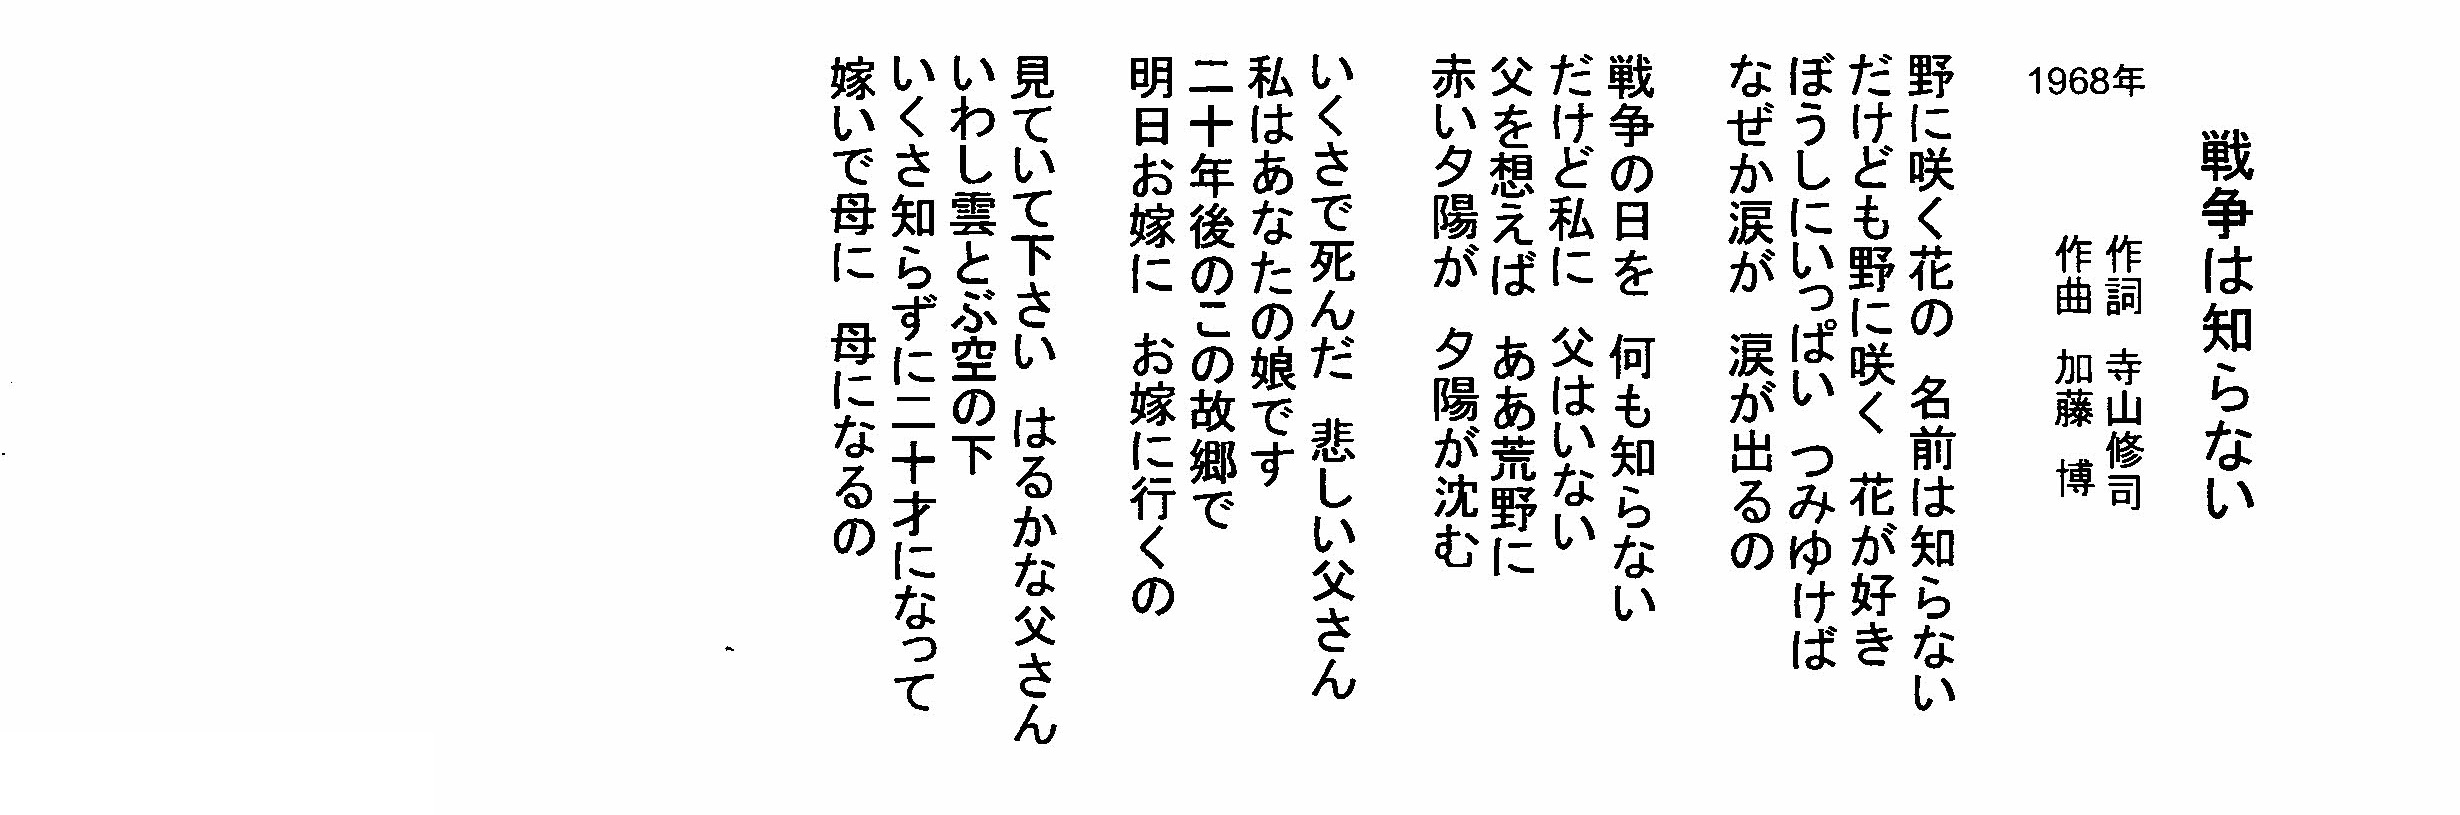 戦争は知らない
作詞 寺山修司
作曲 加藤 博
1968年
野に咲く花の 名前は知らない
だけども野に咲く 花が好き
ぼうしにいっぱい つみゆけば
なぜか涙が 涙が出るの
戦争の日を 何も知らない
だけど私に 父はいない
父を想えば ああ荒野に
赤い夕陽が 夕陽が沈む
いくさで死んだ 悲しい父さん
私はあなたの娘です
二十年後のこの故郷で
明日お嫁に お嫁に行くの
見ていて下さい はるかな父さん
いわし雲とぶ空の下
いくさ知らずに二十才になって
嫁いで母に 母になるの